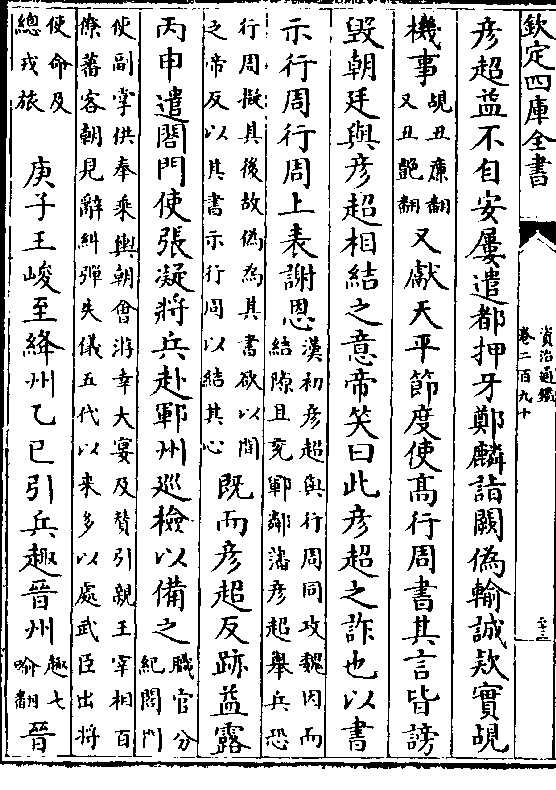 欽定四庫全書
資治通鑑
卷二百九十
二十三
彦超益不自安屢遣都押牙鄭麟詣闕偽輸誠欵實覘
機事覘丑廉翻又丑艶翻又獻天平節度使髙行周書其言皆謗
毁朝廷與彦超相結之意帝笑曰此彦超之詐也以書
示行周行周上表謝恩漢初彦超與行周同攻魏因而結隙且兖鄆鄰藩彦超舉兵恐
行周擬其後故偽為其書欲以間之帝反以其書示行周以結其心既而彦超反跡益露
丙申遣閤門使張凝將兵赴鄆州巡檢以備之職官分紀閤門
使副掌供奉乘輿朝會游幸大宴及贊引親王宰相百僚蕃客朝見辭糾彈失儀五代以来多以處武臣出將
使命及總戎旅庚子王峻至絳州乙巳引兵趣晉州趣七喻翻晉